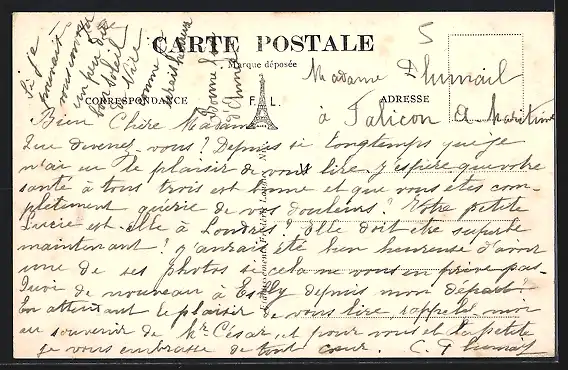 CARTE POSTALE
Marque déposée
CORRESPONDANCE
F. L.
ADRESSE
5
Madame Plumail
à Falicon A. Maritime
Si je
pouvais
vous envoyer
un peu de
bon soleil
Bien Chère Madame
Que devenez-vous? Depuis si longtemps que je
n'ai eu le plaisir de vous lire. J'espère que votre
santé à tous trois est bonne et que vous êtes com-
plètement guérie de vos douleurs? Votre petite
Lucie est-elle à Londres? Elle doit être superbe
maintenant? J'aurais été bien heureuse d'avoir
une de ses photos si cela ne vous en prive pas.
Quoi de nouveau à depuis mon départ?
En attendant le plaisir de vous lire rappelez moi
au souvenir de Mr César, et pour vous et la petite
je vous embrasse de tout cœur. C. Plumail